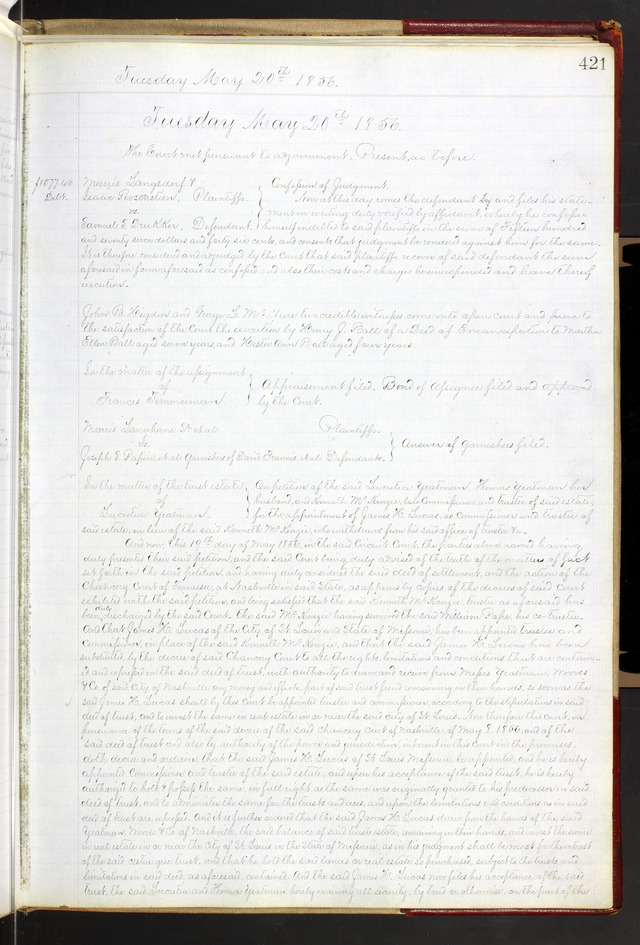 421
Tuesday May 20th 1856.
Tuesday May 20th 1856.
The Court met pursuant to adjournment, Present, as before.
$1577.46 Morris Langsdorf &
Debt. Isaac Plaintiffs.
vs.
Samuel E. Defendant.
Confession of Judgment.
Now at this day comes the defendant and files his state-
ment in writing duly verified by affidavit, whereby he confesses
himself indebted to said plaintiffs in the sum of Fifteen hundred
and seventy seven dollars and forty six cents, and consents that judgment be rendered against him for the same.
It is therefore considered and adjudged by the Court that said plaintiffs recover of said defendant the sum
aforesaid in form aforesaid as confessed and also their costs and charges herein expended and have thereof
execution.
John B. Higdon and George W. McClure two credible witnesses come into open Court and prove to
the satisfaction of the Court the execution by Henry J. Ball of a Deed of Emancipation to Martha
Ellen Ball aged seven years, and Hester Ann Ball aged four years.
In the matter of the assignment
of
Francis Timmerman
Appraisement filed. Bond of Assignee filed and approved
by the Court.
Morris et al. Plaintiffs.
vs.
Joseph E. Papin, et al. Garnishees of David Francis, et al. Defendants.
Answer of Garnishees filed.
In the matter of the trust estate
of
Lucretia Yeatman.
On petition of the said Lucretia Yeatman Thomas Yeatman her
husband, and Kenneth McKenzie, late Commissioner and trustee of said estate,
for the appointment of James H. Lucas, as Commissioner and trustee of
said estate, in lieu of the said Kenneth McKenzie, who withdraws from his said office of trustee &c.
And now, this 19th day of May 1856, in the said Circuit Court, the parties above named having
duly presented their said petition, and the said Court being duly advised of the truth of the matters of fact
set forth in the said petition, and having duly considered the said deed of settlement, and the action of the
Chancery Court of Tennessee, at Nashville in said State, as appears by copies of the decrees of said Court
exhibited with the said petition, and being satisfied that the said Kenneth McKenzie trustee as aforesaid has
been duly discharged by the said Court. The said McKenzie having survived the said William Pope, his co-trustee.
And that James H. Lucas of the City of St. Louis and State of Missouri, has been appointed trustee and
Commissioner, in place of the said Kenneth McKenzie, and that the said James H. Lucas has been
substituted, by the decree of said Chancery Court to all the rights, limitations and conditions that are contain-
ed and expressed in the said deed of trust, with authority to draw and receive from Messrs Yeatman, Woods
& Co of said City of Nashville any money and effects, part of said trust fund remaining in their hands, so soon as the
said James H. Lucas should by this Court be appointed trustee and commissioner, according to the stipulations in said
deed of trust, and to invest the same in real estate in or near the said city of St. Louis. Now therefore this Court, in
pursuance of the terms of the said decree of the said chancery Court of Nashville, of May 8, 1856, and of the
said deed of trust and also by authority of the power and jurisdiction, inherent in this Court in the premises,
doth decree and ordain, that the said James H. Lucas of St. Louis Missouri, be appointed, and he is hereby
appointed Commissioner and trustee of the said estate, and upon his acceptance of the said trust, he is hereby
authorized to hold & possess the same, in full right as the same was originally granted to his predecessor in said
deed of trust, and to administer the same for the trusts and uses, and upon the limitations and conditions as in said
deed of trust are expressed. And it is further ordered that the said James H. Lucas draw from the hands of the said
Yeatman, Woods & Co of Nashville, the said balance of said trust estate, remaining in their hands, and invest the same
in real estate in or near the City of St. Louis in the State of Missouri, as in his judgment shall be most for the interest
of the said cestui que trust, and that he hold the said lands or real estate so purchased, subject to the trusts and
limitations in said deed, as aforesaid, contained. And the said James H. Lucas now files his acceptance of the said
trust, the said Lucretia and Thomas Yeatman hereby waiving all security, by bond or otherwise, on the part of the